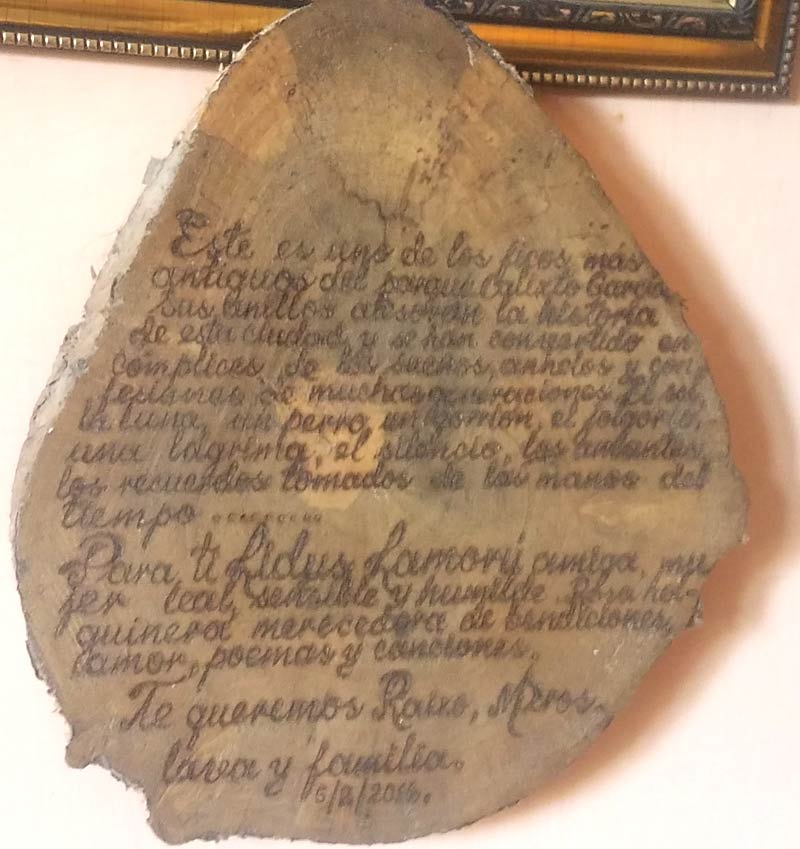 Este es uno de los ficos más
antiguos del parque Calixto García
sus anillos atesoran la historia
de esta ciudad, y se han convertido en
cómplices de los sueños, anhelos y con
fesiones de muchas generaciones. El sol,
la luna, un perro, un gorrión, el jolgorio,
una lágrima, el silencio, los amantes,
los recuerdos tomados de las manos del
tiempo .........
Para ti Lidus Lamorú amiga, mu
jer leal, sensible y humilde. Rosa hol-
guinera merecedora de bendiciones,
amor, poemas y canciones.
Te queremos
y familia.
6/2/2016.